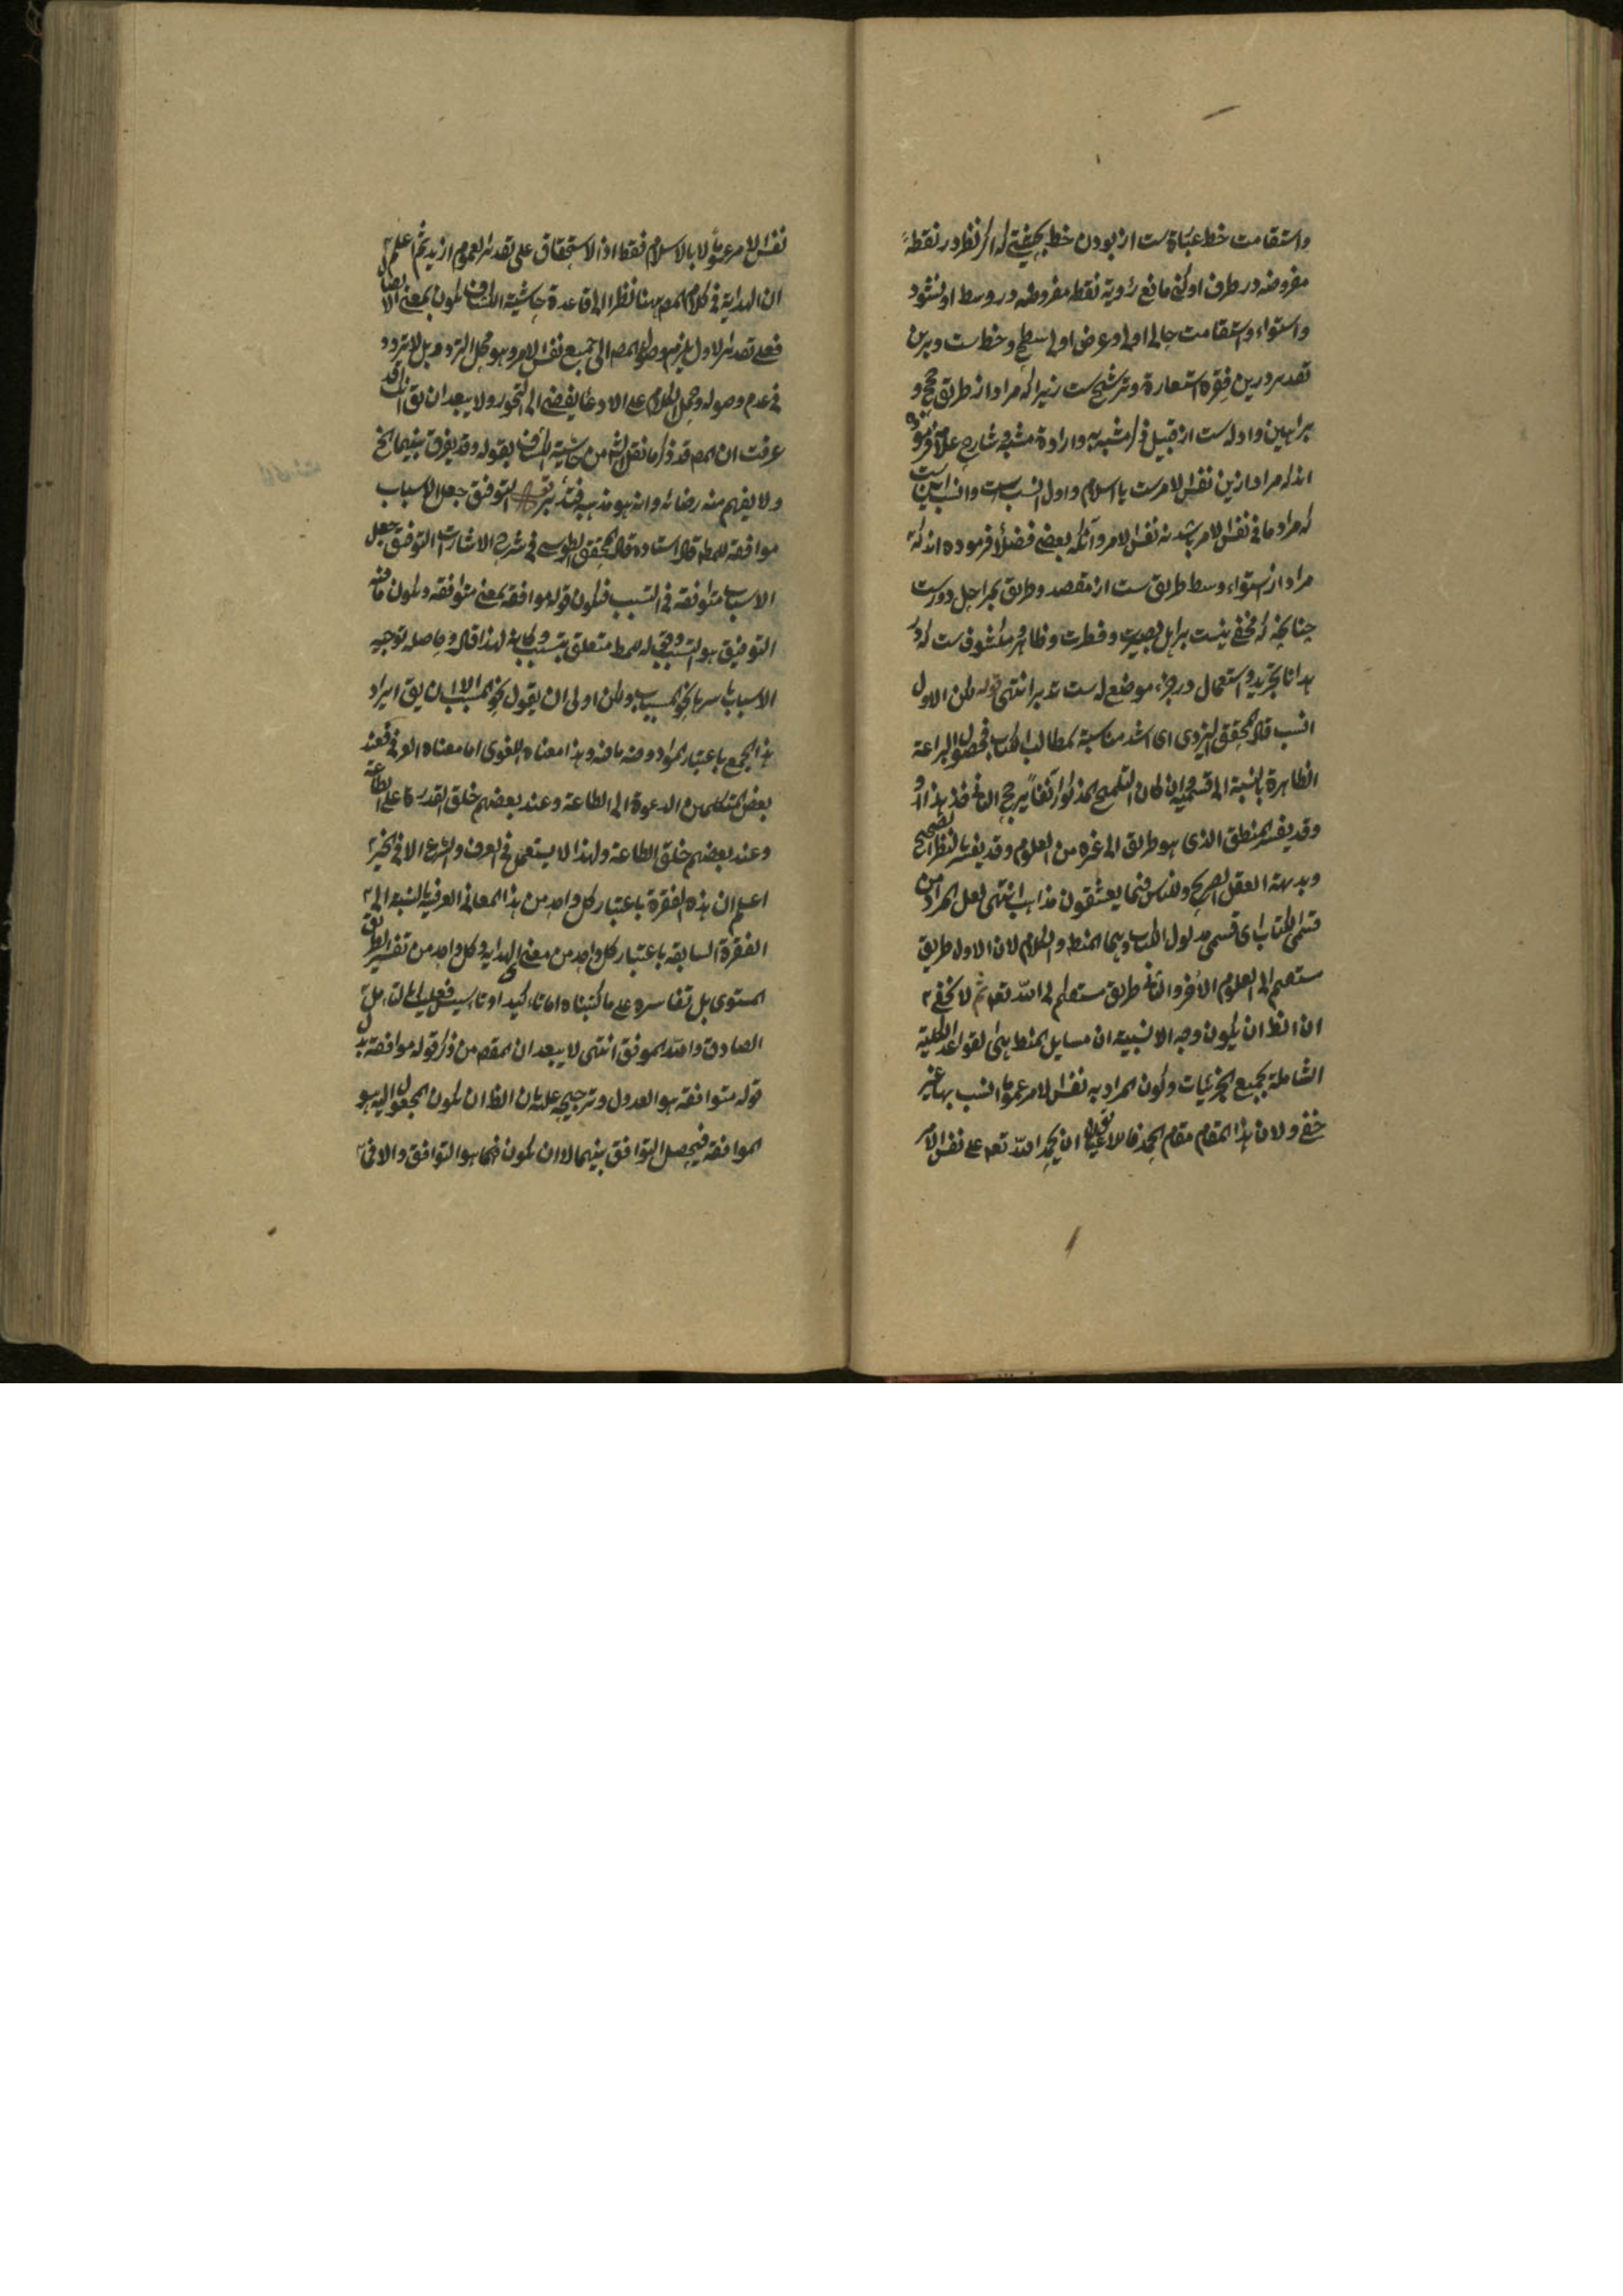 واستقامت خط عبارة ست از بودن خط بحیثیتی که اگر نظر در نقطهٔ
مفروضه در طرف او کنی مانع رؤیة نقطه مفروضه در وسط او نشود
واستواء واستقامت حالی اولی وعرض اولی سطح وخط ست وبرین
تقدیر درین فقره استعارة وترشیح ست زیرا که مراد از طریق حجج و
براهین وادله ست از قبیل ذکر مشبه به وارادة مشبه وشارح علامه فرموده
اند که مراد ازین نفس الامرست یا اسلام واول انسب ست وانسب این ست
که مراد ما فی نفس الامر باشد نه نفس الامر وآنکه بعضی فضلا فرموده اند که
مراد از استواء وسط طریق ست از مقصد وطریق بمراحل دورست
چنانچه که مخفی نیست بر اهل بصیرت وفطرت وظاهر ومکشوف ست که در
استعمال در جزء موضع له ست تدبر انتهی قوله لکن الاول
انسب قال المحقق الیزدی ای اشد مناسبة لمطالب الکتاب فحصول البراعة
الظاهرة بالنسبة الی قسمیه وان کان التلمیح المذکور آنفا یرجح الثانی خذ هذا
وقد یفسر بالمنطق الذی هو طریق الی غیره من العلوم وقد یفسر بالنظر الصحیح
وبدیهة العقل الصریح وللناس فیما یعشقون مذاهب انتهی لعل المراد من
قسمی الکتاب ای قسمی مدلول الکتاب وهما المنطق والکلام لان الاول طریق
مستقیم الی العلوم الأخر والثانی طریق مستقیم الی الله تعم ثم لا یخفی
ان الظ ان یکون وجه الانسبیة ان مسایل المنطق هی القواعد الکلیة
الشاملة بجمیع الجزئیات وکون المراد به نفس الامر عموما انسب بها غیر
خفی ولان هذا المقام مقام الحمد فالا ان یحمد الله تعم علی نفس الامر
نفس الامر عموما لا بالاسلام فقط اذ الاستحقاق علی تقدیر العموم ازید ثم اعلم
ان الهدایة فی کلام المص ههنا نظرا الی قاعدة حاشیة الکشاف یکون بمعنی الایصال
فعلی تقدیر الاول یلزم وصول المص الی جمیع نفس الامر وهو محل التردد بل لا تردد
فی عدم وصوله وحمل الکلام علی الادعا یفضی الی التجوز ولا یبعد ان یق انک قد
عرفت ان المص قد ذکر ما نقل الشم من حاشیة الکشاف بقوله وقد یفرق بینهما الخ
ولا یفهم منه رضائه وانه هو مذهبه فتأمل التوفیق جعل الاسباب
موافقة للمط قال استاده قال المحقق الطوسی فی شرح الاشارات التوفیق جعل
الاسباب متوافقة فی التسبب فیکون قوله موافقة بمعنی متوافقة ویکون
التوفیق هو التسبب وقوله للمط متعلق بتسبب ولهذا قال وحاصله توجیه
الاسباب باسرها نحو المسبب ولکن اولی ان یقول نحو المسبب الا ان یق ایراد
هذا الجمع باعتبار المواد وفیه ما فیه وهذا معناه اللغوی اما معناه العرفی فعند
بعض المتکلمین الدعوة الی الطاعة وعند بعضهم خلق القدرة علی الطاعة
وعند بعضهم خلق الطاعة ولهذا لا یستعمل فی العرف والشرع الا فی الخیر
اعلم ان هذه الفقرة باعتبار کل واحد من هذه المعانی العرفیة بالنسبة الی
الفقرة السابقة باعتبار کل واحد من معنی الهدایه وکل واحد من تفسیر الطریق
المستوی بل تفاسیره علی ما کتبناه اما تاکید او تاسیس فعلیک بالتامل
الصادق والله الموفق انتهی لا یبعد ان المقص من ذکر قوله موافقة بدل
قوله متوافقة هو العدول وترجیحه علیه بان الظ ان یکون المجعول الیه هو
الموافقة فیحصل التوافق بینهما لا ان یکون فیما هو التوافق والا فی